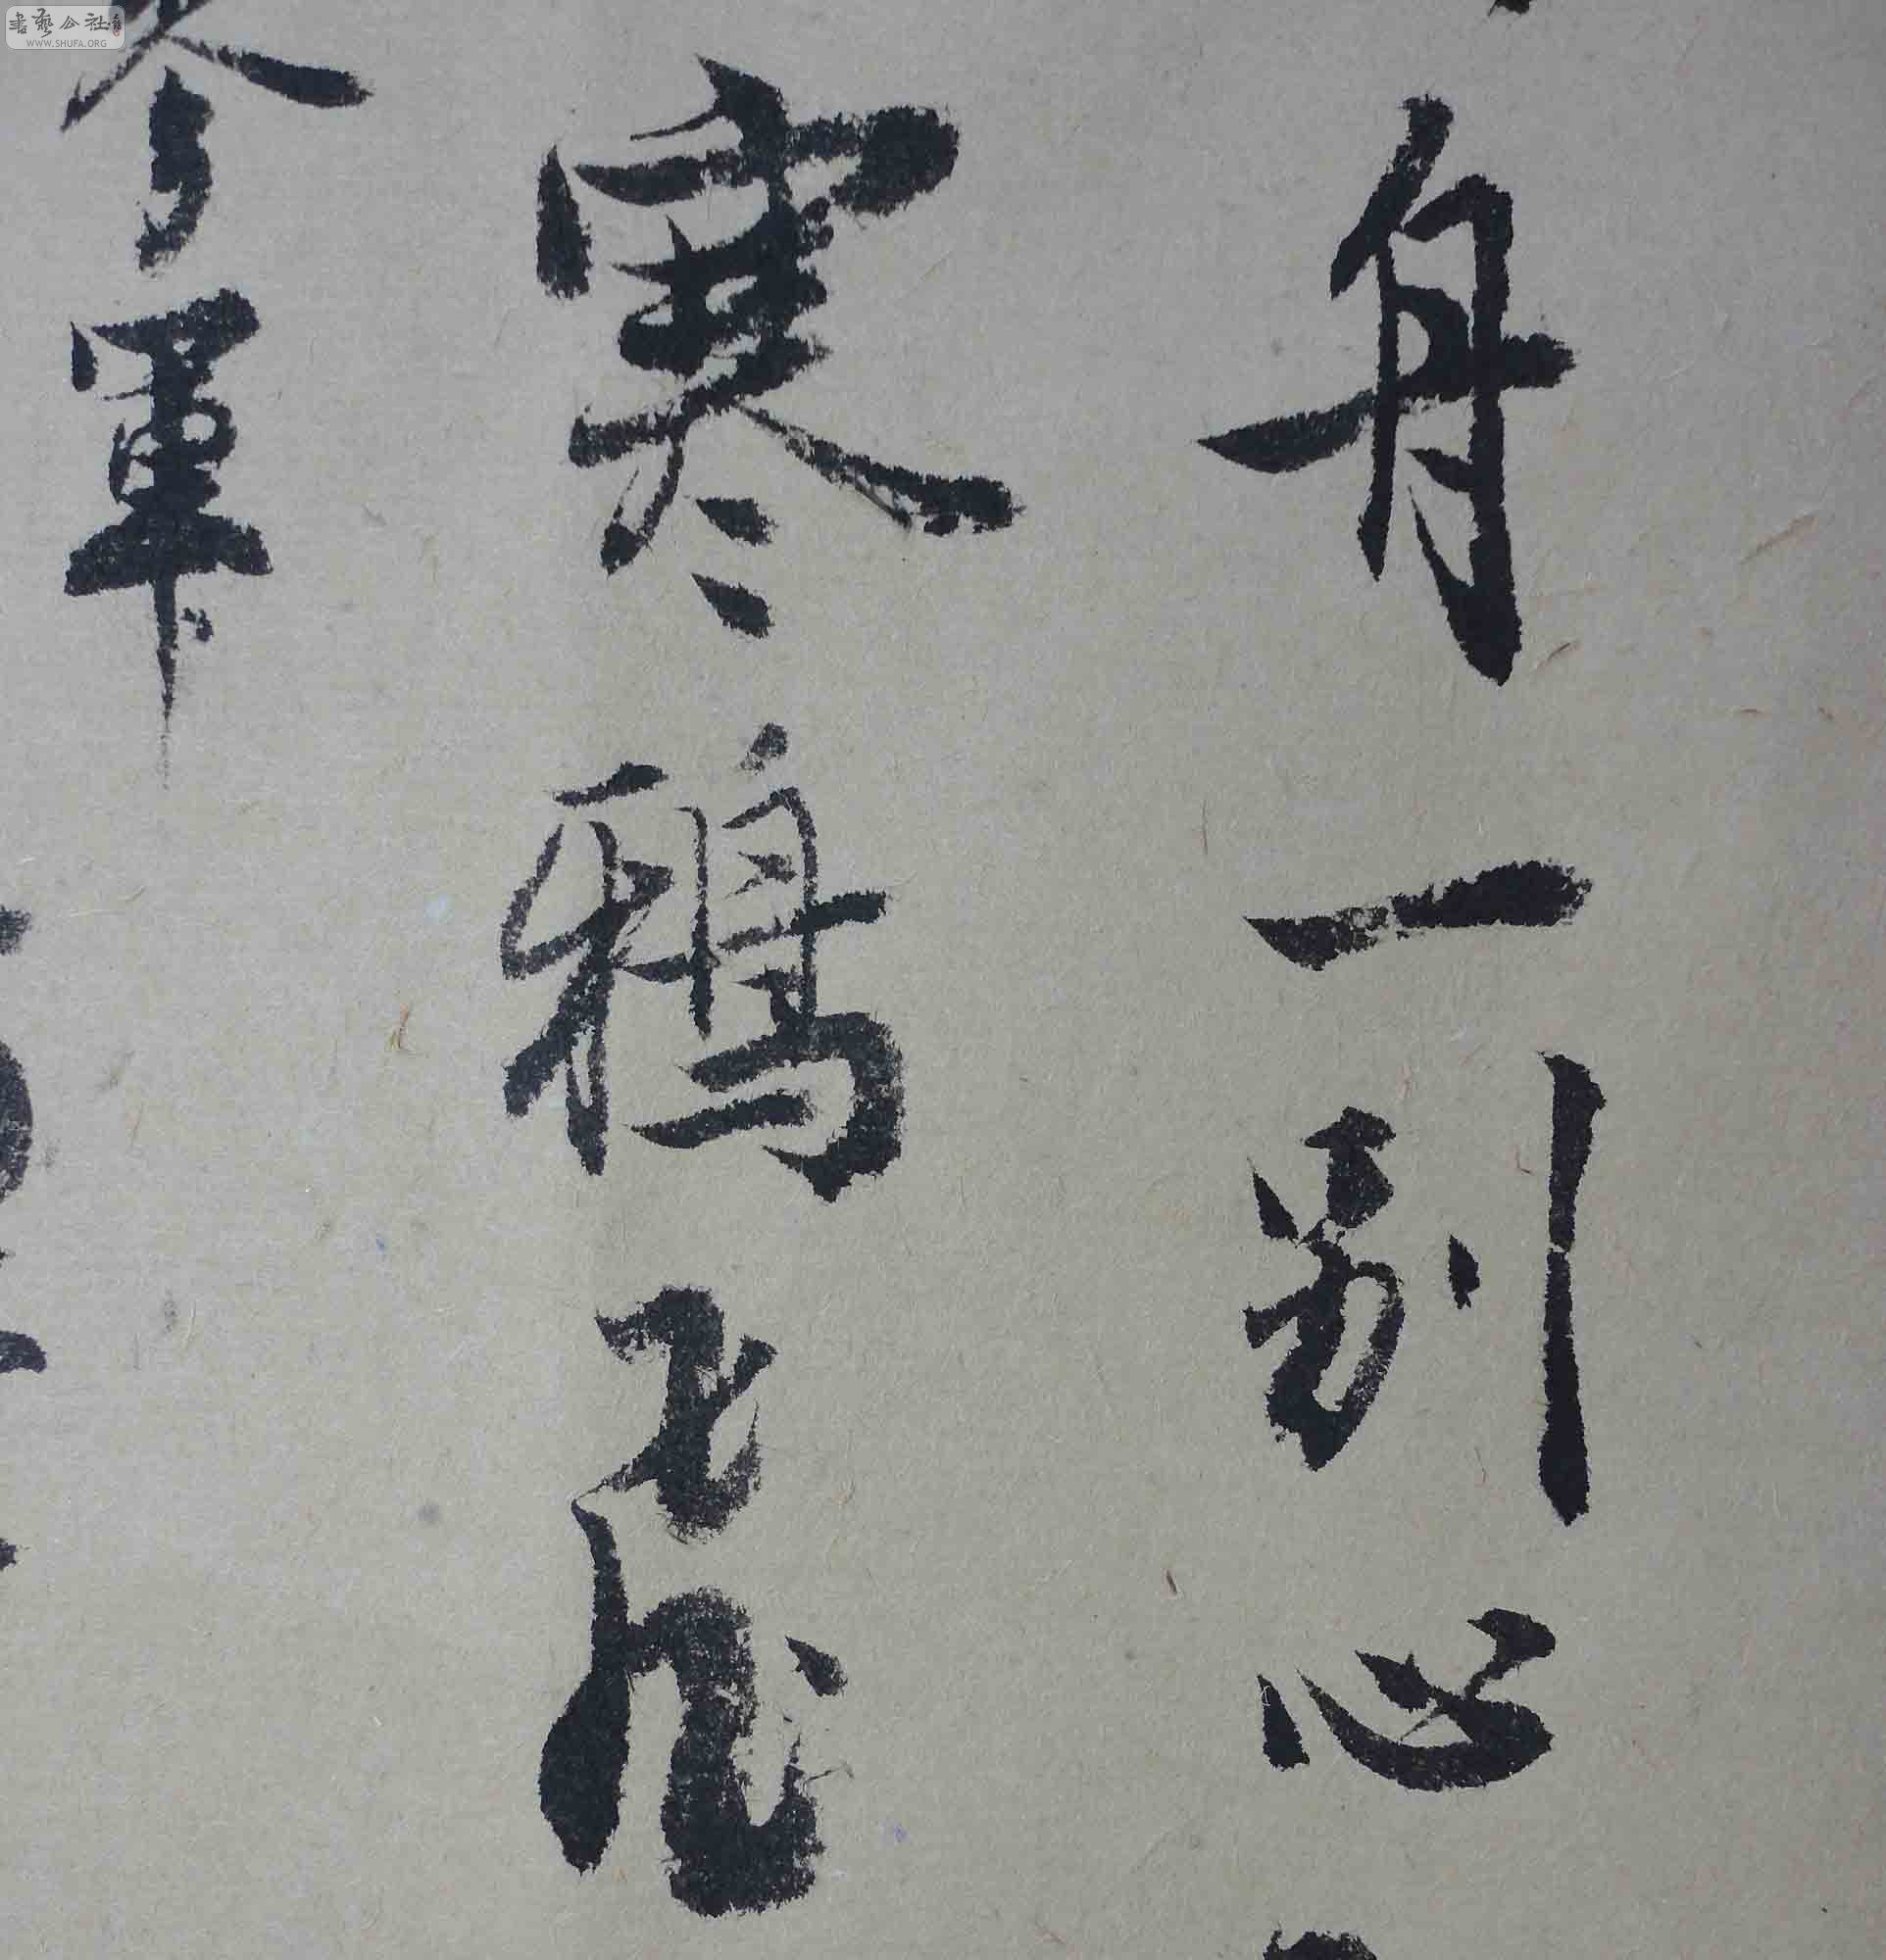 舟一别心
寒鸦飛
參軍
書藝公社
WWW.SHUFA.ORG